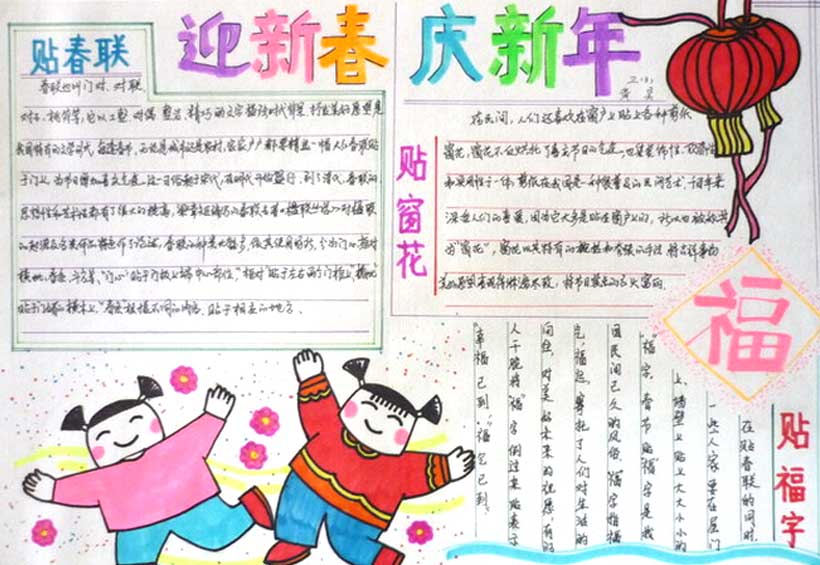 迎新春 庆新年
贴春联
春联也叫门对、对联、
对子、桃符等,它以工整、对偶、精巧的文字描绘时代背景,抒发美好愿望是
我国特有的文学形式。每逢春节,无论是城市还是农村,家家户户都要精选一幅大红春联贴
于门上,为节日增加喜庆气氛。这一习俗起于宋代,在明代开始盛行,到了清代,春联的
思想性和艺术性都有了很大的提高,
春联的种类比较多,依其使用场所,可分为门心、框对、
横批、春条、斗方等。“门心”贴于门板上端中心部位,“框对”贴于左右两个门框上,“横批”
贴于门楣的横木上,“春条”根据不同的内容,贴于相应的地方。
贴窗花
在民间,人们还喜欢在窗户上贴上各种剪纸
窗花。窗花不仅烘托了喜庆节日的气氛,也集装饰性、欣赏性
和实用性于一体,剪纸在我国是一种很普及的民间艺术,千百年来
深受人们的喜爱,因为它大多是贴在窗户上的,所以也被称其
为“窗花”,窗花以其特有的概括和夸张的手法将吉祥事物
美好愿望表现得淋漓尽致,将节日装点的红火富丽。
福
贴福字
在贴春联的同时,
一些人家要在屋门
上、墙壁上贴上大大小小的
“福”字。春节贴“福”字,是我
国民间已久的风俗。“福”字指福
气、福运,寄托了人们对生活的
向往,对美好未来的祝愿,有的
人干脆将“福”字倒过来贴,表示
“幸福已到”“福气已到”。